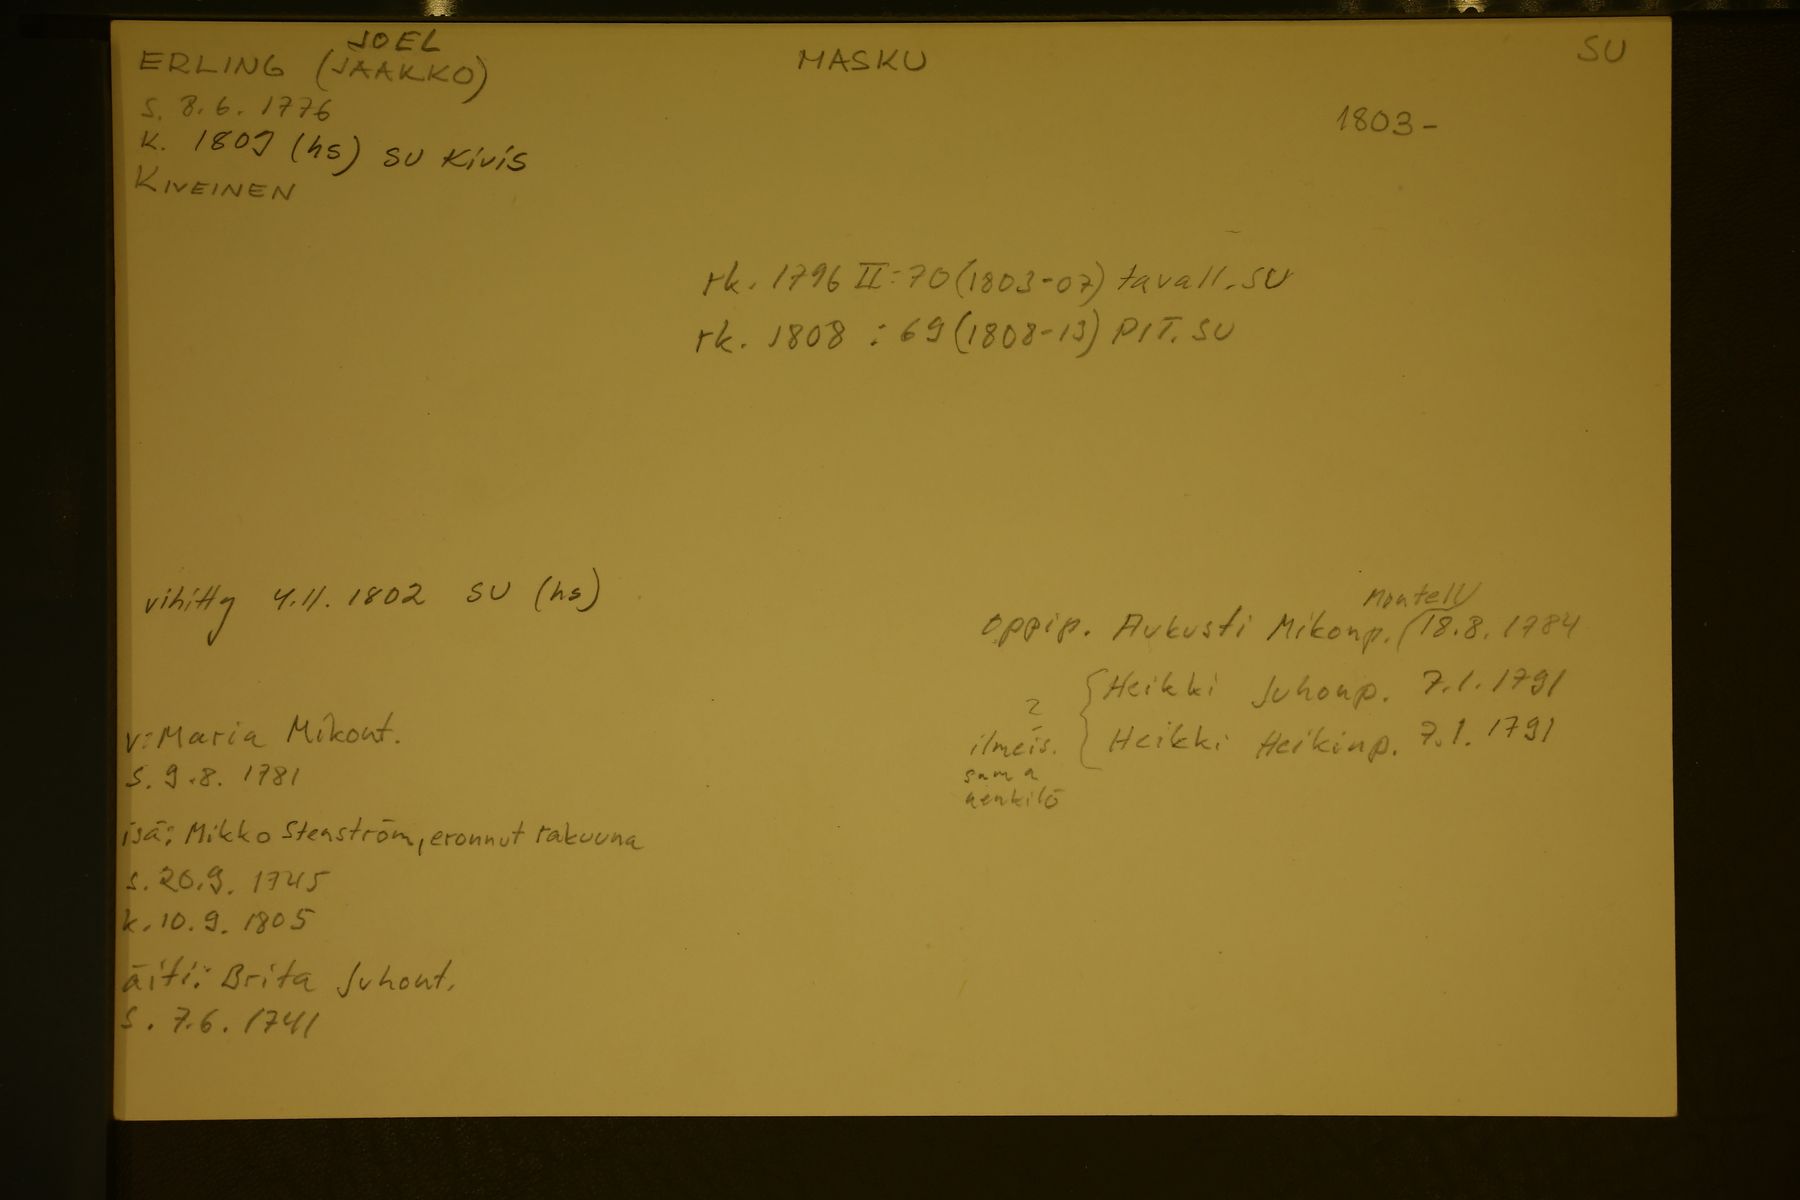 JOEL
ERLING (JAAKKO) MASKU SU
s. 8.6. 1776
1803-
k. 1809 (hs) SU Kivis
KIVEINEN
rk. 1796 II:70 (1803-07) tavall. SU
rk. 1808 : 69 (1808-13) PIT. SU
vihitty 4.11. 1802 SU (hs)
Montell
oppip. Aukusti Mikonp. (18.8. 1784
{Heikki Juhonp. 7.1.1791
{Heikki Heikinp. 7.1. 1791
ilmeis.
sama
henkilö
v: Maria Mikont.
s. 9.8. 1781
isä: Mikko Stenström, eronnut rakuuna
s. 20.9. 1745
k. 10.9. 1805
äiti: Brita Juhont.
s. 7.6. 1741